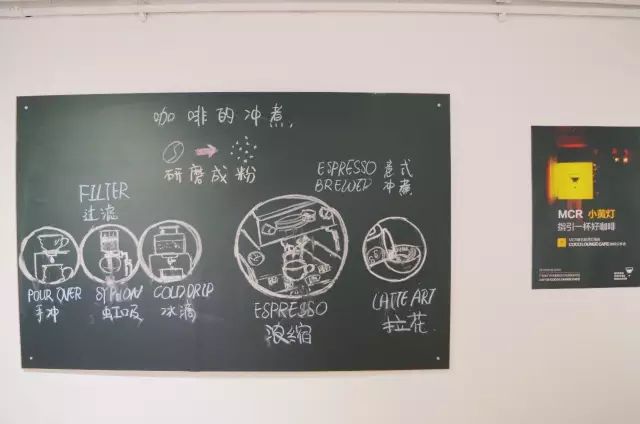 咖啡的冲煮
研磨成粉
FILTER
过滤
POUR OVER
手冲
SYPHON
虹吸
COLD DRIP
冰滴
ESPRESSO 意式
BREWED 冲煮
ESPRESSO
浓缩
LATTE ART
拉花
MCR 小黄灯
指引一杯好咖啡